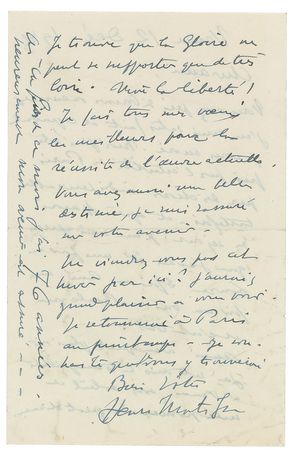 Je trouve que la Gloire ne
peut se supporter que de très
loin. Vive la liberté!
Je fais tous mes vœux
les meilleurs pour la
réussite de l'œuvre actuelle.
Vous avez aussi une telle
estime, je suis rassuré
sur votre avenir.
Ne viendrez vous pas cet
hiver par ici? J'aurais
grand plaisir à vous voir.
Je retournerai à Paris
au printemps - je
y trouverai
Bien votre
Henri Matisse
j'ai 76 années -
mon avenir est assuré - - -